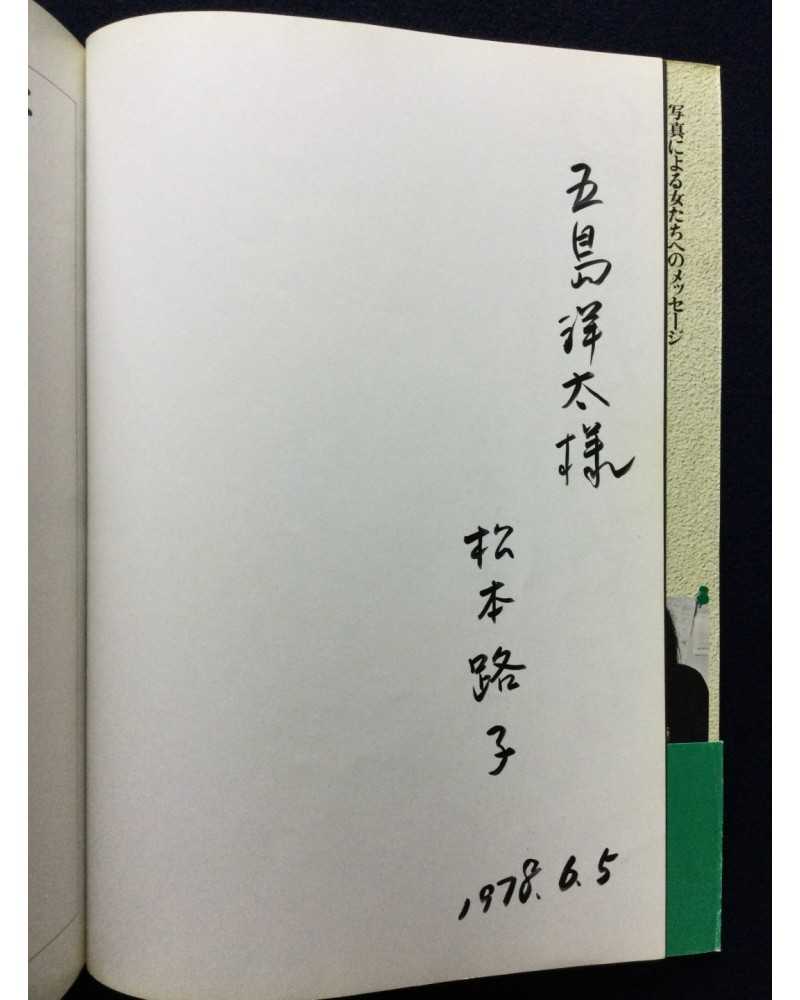 写真による女たちへのメッセージ
五島洋太様
松本路子
1978.6.5